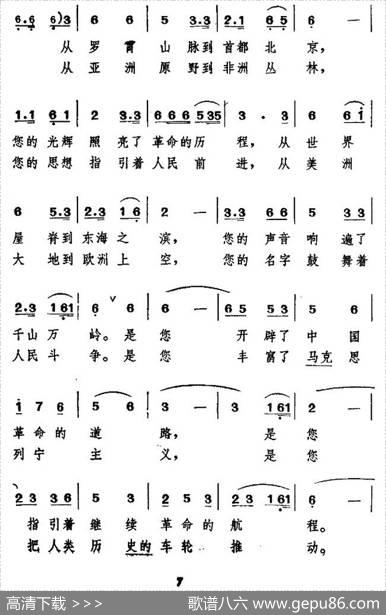 6.6 6 3 | 6 6 | 5 3.3 | 2.1 6 5 | 6 — |
从罗霄山脉到首都北京，
从亚洲原野到非洲丛林，
1.1 6 1 | 2 3.3 | 6 6 6 5 3 5 | 3 . 3 | 6 6 i |
您的光辉照亮了革命的历程，从世界
您的思想指引着人民前进，从美洲
6 5.3 | 2.3 1 6 | 2 — | 3.3 6 6 | 5 3 3 |
屋脊到东海之滨，您的声音响遍了
大地到欧洲上空，您的名字鼓舞着
2.3 1 6 1 | 6 6 | 6 — | 6 5 5 3 | 3 2 3 |
千山万岭。是您开辟了中国
人民斗争。是您丰富了马克思
1 7 6 | 5 6 | 3 — | 3 1 6 1 | 2 — |
革命的道路，是您
列宁主义，是您
2 3 3 6 | 5 3 | 5 3 2 3 | 2 3 1 6 1 | 6 — |
指引着继续革命的航程。
把人类历史的车轮推动。
7
高清下载 >>> 歌谱八六 www.gepu86.com